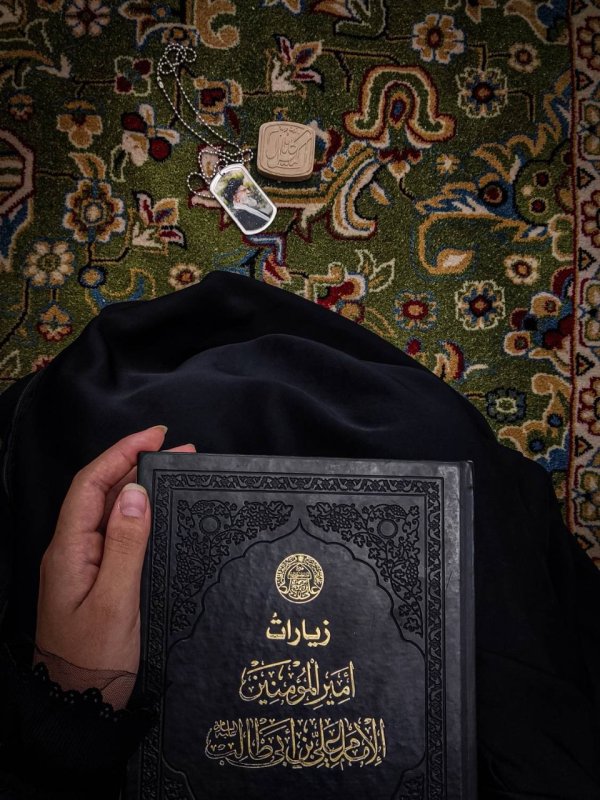 زيارات
أمير المؤمنين
الإمام علي بن أبي طالب عليه السلام